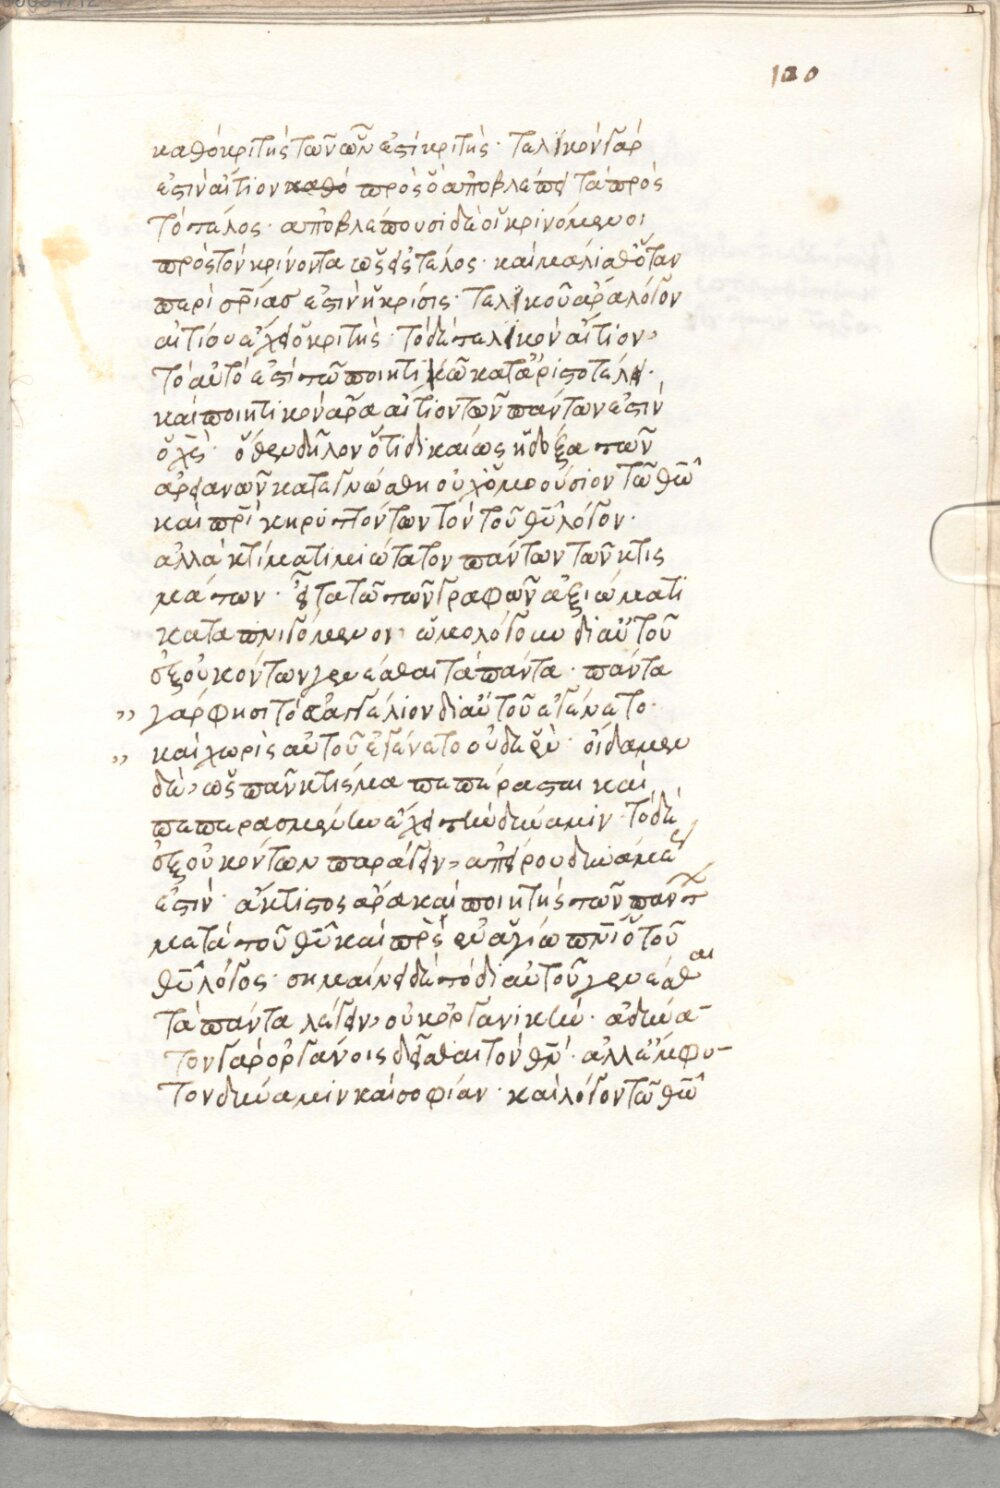 120
καθόκριτής τῶν ὧν ἐστὶ κριτής· τελικὸν γάρ
ἐστιν αἴτιον καθό πρὸς ὃ ἀποβλέπει τὰ πρὸς
τὸ τέλος· ἀποβλέπουσι δὲ οἱ κρινόμενοι
πρὸς τὸν κρίνοντα ὡς εἰς τέλος· καὶ μάλιστα ὅταν
περὶ σρίας ἐστὶν ἡ κρίσις· τελικοῦ ἄρα λόγον
αἰτίου ἔχει ὁ κριτής· τὸ δὲ τελικὸν αἴτιον,
τὸ αὐτό ἐστι τῶ ποιητικῶ κατὰ ἀριστοτέλη·
καὶ ποιητικὸν ἄρα αἴτιον τῶν πάντων ἐστὶν
ὁ χς· ὅθεν δῆλον ὅτι δικαίως ἡ δόξα τῶν
ἀρειανῶν κατεγνώσθη οὐχ ὁμοούσιον τῶ θῶ
καὶ πρὶ κηρυττόντων τὸν τοῦ θυ λόγον·
ἀλλὰ κτίσμα τιμιώτατον πάντων τῶν κτισ
μάτων· ἔπειτα τῶ τῶν γραφῶν ἀξιώματι
καταπνιγόμενον, ὡμολόγουν δι αὐτοῦ
ἐξ οὐκ ὄντων γενέσθαι τὰ πάντα· πάντα
,, γάρ φησι τὸ εὐαγγέλιον δι αὐτοῦ ἐγένετο·
,, καὶ χωρὶς αὐτοῦ ἐγένετο οὐδὲ ἕν· οἴδαμεν
δὲ, ὡς πᾶν κτίσμα πεπέρασται καὶ
πεπερασμένην ἔχει τὴν δύναμιν· τὸ δὲ
ἐξ οὐκ ὄντων παράγειν, ἀπείρου δυνάμεως
ἐστίν· ἄκτιστος ἄρα καὶ ποιητὴς τῶν πάντων
μετὰ τοῦ θυ καὶ πρς ἐν ἁγίω πνι ὁ τοῦ
θυ λόγος· σημαίνει δὲ τὸ δι αὐτοῦ γενέσθαι
τὰ πάντα λέγειν, οὐκ ὀργανικὴν· ἀδύνα-
τον γὰρ ὀργάνοις δεῖσθαι τὸν θν· ἀλλ' ἔμφυ-
τον δύναμιν καὶ σοφίαν· καὶ λόγον τῶ θῶ